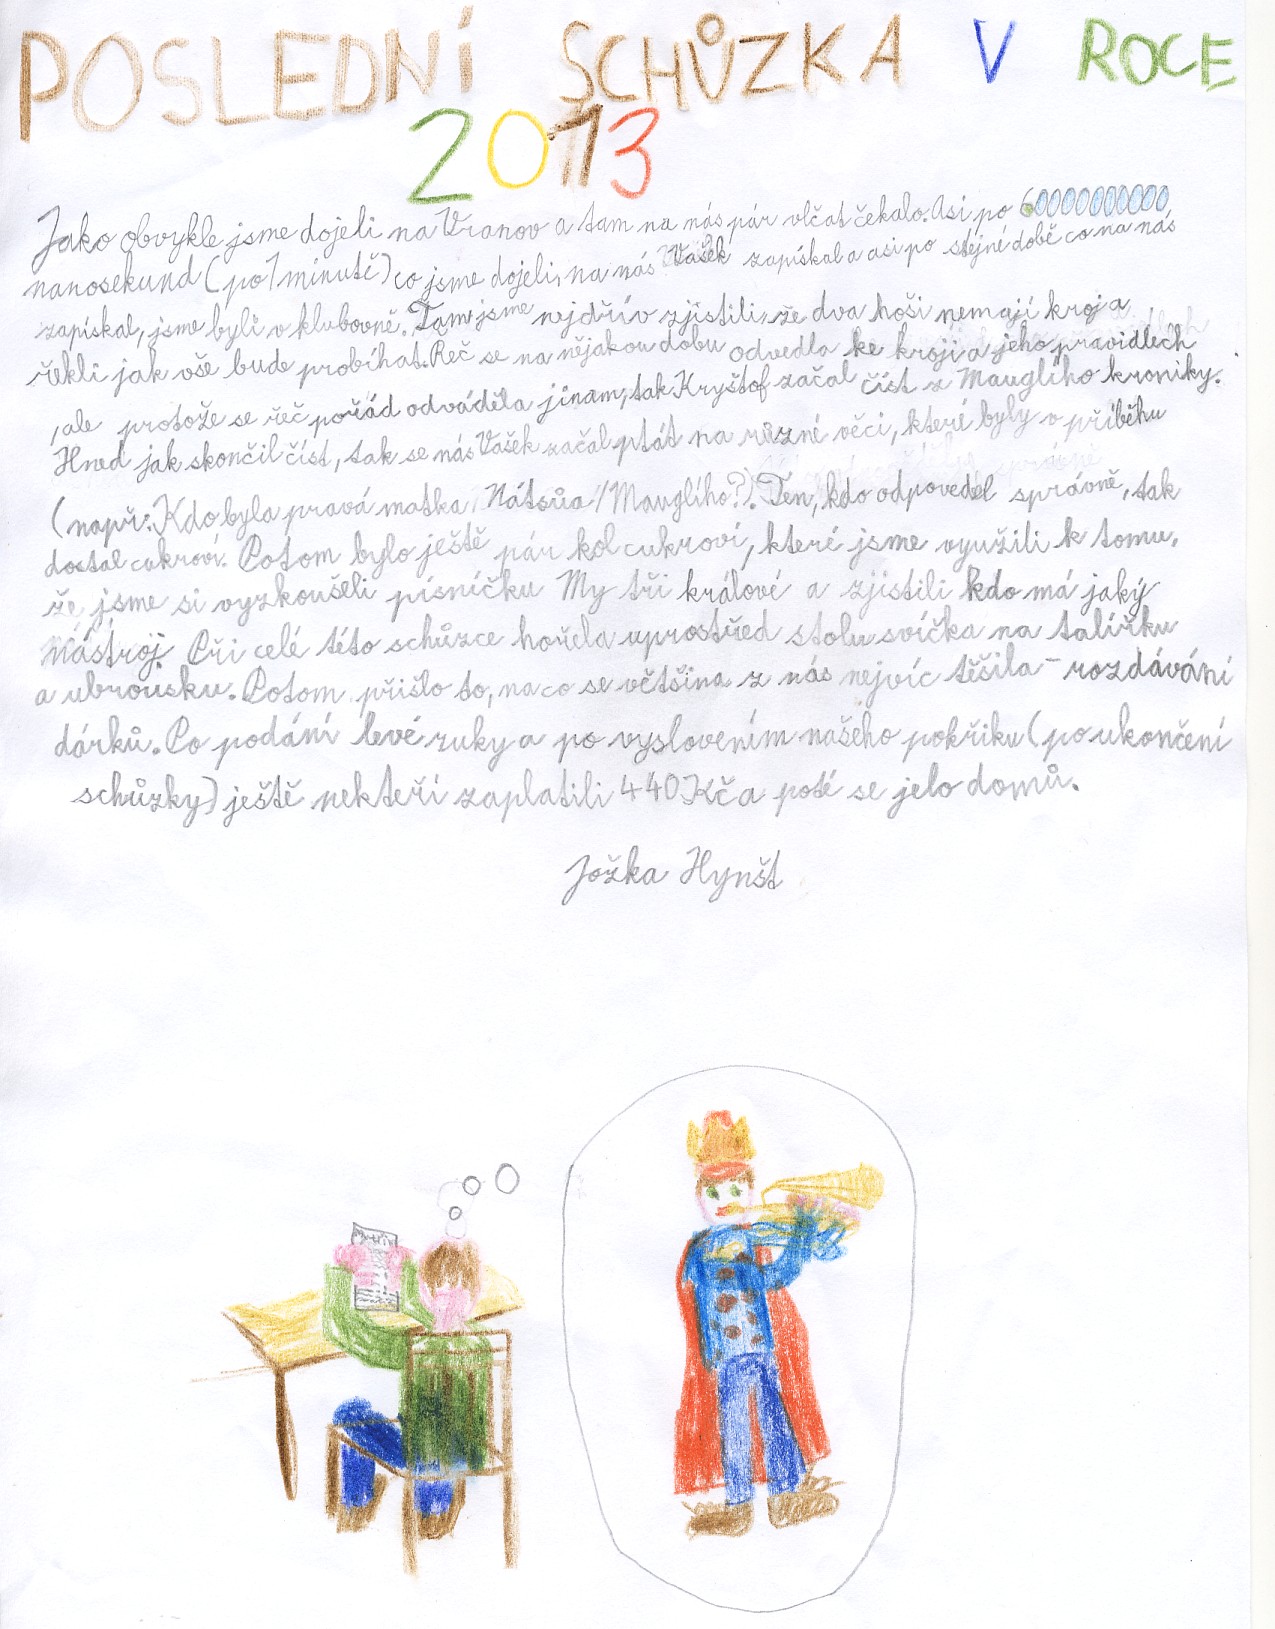 POSLEDNÍ SCHŮZKA V ROCE
2013
Jako obvykle jsme dojeli na Vranov a tam na nás pár vlčat čekalo. Asi po 60000000000
nanosekund (po 1 minutě) co jsme dojeli, na nás Vašek zapískal a asi po stejné době co na nás
zapískal, jsme byli v klubovně. Tam jsme nejdřív zjistili, že dva hoši nemají kroj a
řekli jak vše bude probíhat. Řeč se na nějakou dobu odvedla ke kroji a jeho pravidlech
, ale protože se řeč pořád odváděla jinam, tak Kryštof začal číst z Mauglího kroniky.
Hned jak skončil číst, tak se nás Vašek začal ptát na různé věci, které byly v příběhu
(např: Kdo byla pravá matka Nátsůa/Mauglího?). Ten, kdo odpověděl správně, tak
dostal cukroví. Potom bylo ještě pár kol cukroví, které jsme využili k tomu,
že jsme si vyzkoušeli písničku My tři králové a zjistili kdo má jaký
nástroj. Při celé této schůzce hořela uprostřed stolu svíčka na talířku
a ubrousku. Potom přišlo to, na co se většina z nás nejvíc těšila - rozdávání
dárků. Po podání levé ruky a po vyslovením našeho pokřiku (po ukončení
schůzky) ještě nekteří zaplatili 440 Kč a poté se jelo domů.
Jožka Hynšt